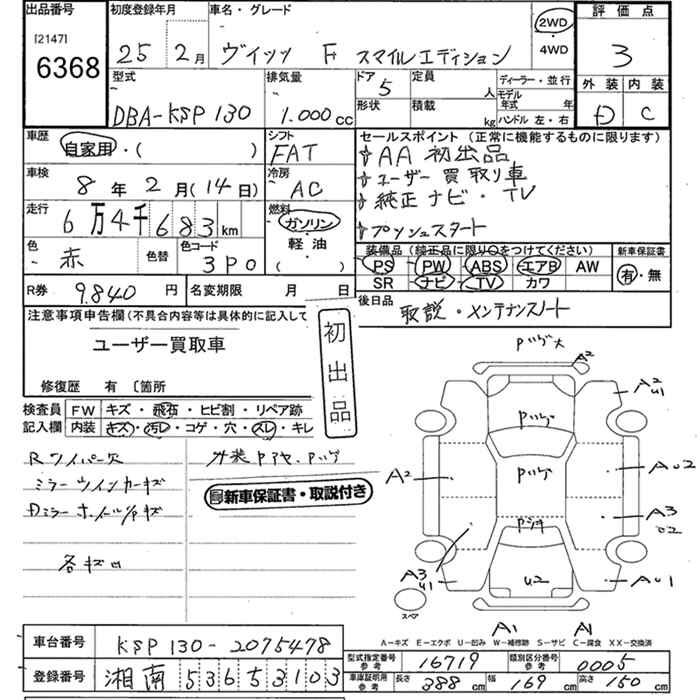 出品番号
[2147]
6368
初度登録年月
25 2月
車名・グレード
ヴィッツ F スマイルエディション
2WD
・
4WD
評価点
3
外装 内装
D C
型式
DBA-KSP130
排気量
1.000cc
ドア
5
定員
人
形状
積載
kg
ディーラー・並行
モデル
年式 年
ハンドル 左・右
車歴
自家用・( )
シフト
FAT
車検
8年2月(14日)
冷房
AC
走行
6万4千683km
燃料
ガソリン
・
軽油
( )
色
赤
色替
色コード
3P0
R券 9.840円
名変期限 月 日
セールスポイント(正常に機能するものに限ります)
AA初出品
ユーザー買取り車
純正ナビ・TV
プッシュスタート
装備品(純正品に限り○をつけてください)
PS PW ABS エアB AW
SR ナビ TV カワ
新車保証書
有・無
後日品
取説・メンテナンスノート
注意事項申告欄(不具合内容等は具体的に記入して
ユーザー買取車
修復歴 有 〔箇所
初出品
検査員
記入欄
FW キズ・飛石・ヒビ割・リペア跡
内装 キズ・汚レ・コゲ・穴・スレ・キレ
Rワイパー欠
ミラーウインカーキズ
外装
新車保証書・取説付き
各キズ凹
A2
A2
U1
A2
A3
A3
U1
U2
AU1
A1
A1
スペア
A-キズ E-エクボ U-凹み W-補修跡 S-サビ C-腐食 XX-交換済
車台番号
KSP130-2075478
登録番号
湘南 536 5 3103
型式指定番号
参考
16719
類別区分番号
参考
0005
車庫証明用
参考
長さ 388cm
幅 169cm
高さ 150cm